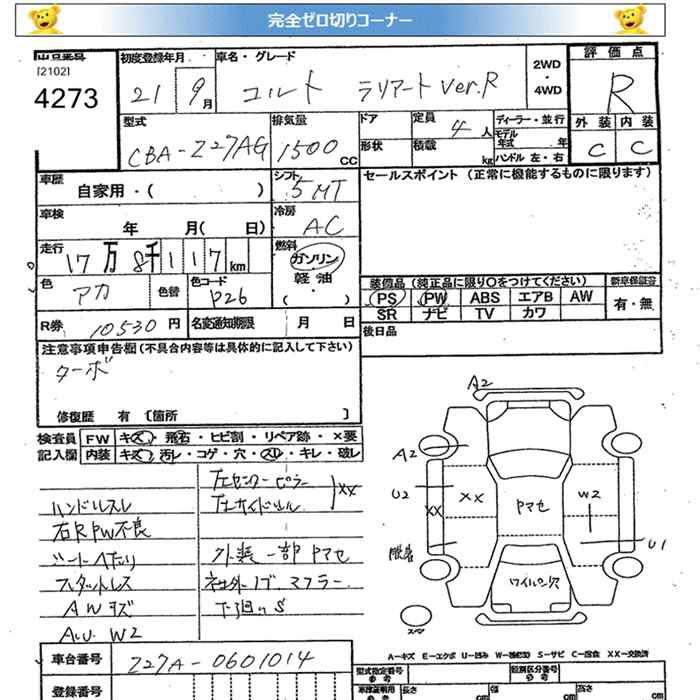 完全ゼロ切りコーナー
出品番号 初度登録年月 車名・グレード 評価点
[2102] 4273 21 9月 コルト ラリアート Ver.R 2WD・4WD R
型式 排気量 ドア 定員 ディーラー・並行 外装 内装
CBA-Z27AG 1500 CC 形状 積載 4人 kg モデル年式 年 ハンドル 左・右 C C
車歴 シフト セールスポイント (正常に機能するものに限ります)
自家用・( ) 5MT
車検 冷房
年 月( 日) AC
走行 燃料
17万8千117km ガソリン
色 色替 色コード 軽油 装備品 (純正品に限り○をつけてください) 新車保証書
アカ P26 ( ・ ) PS PW ABS エアB AW 有・無
SR ナビ TV カワ
R券 10530円 名変通知期限 月 日 後日品
注意事項申告欄 (不具合内容等は具体的に記入して下さい)
ターボ
修復歴 有 〔箇所 〕
検査員 FW キズ・飛石・ヒビ割・リペア跡・×要
記入欄 内装 キズ・汚レ・コゲ・穴・スレ・キレ・破レ
左センターピラー
ハンドルスレ 左サイドシル XX
右R PW不良
シートヘタリ 外装一部ヤマセ
スタットレス 社外 マフラー
AWキズ 下回りS
A.W. W2
A2
A2
U2 XX XX ヤマセ W2
U1
ワイルウ穴
スペア
A-キズ E-エクボ U-凹み W-補修跡 S-サビ C-腐食 XX-交換済
車台番号 Z27A-0601014 型式指定番号 参考 類別区分番号 参考
登録番号 車庫証明用 参考 長さ cm 幅 cm 高さ cm